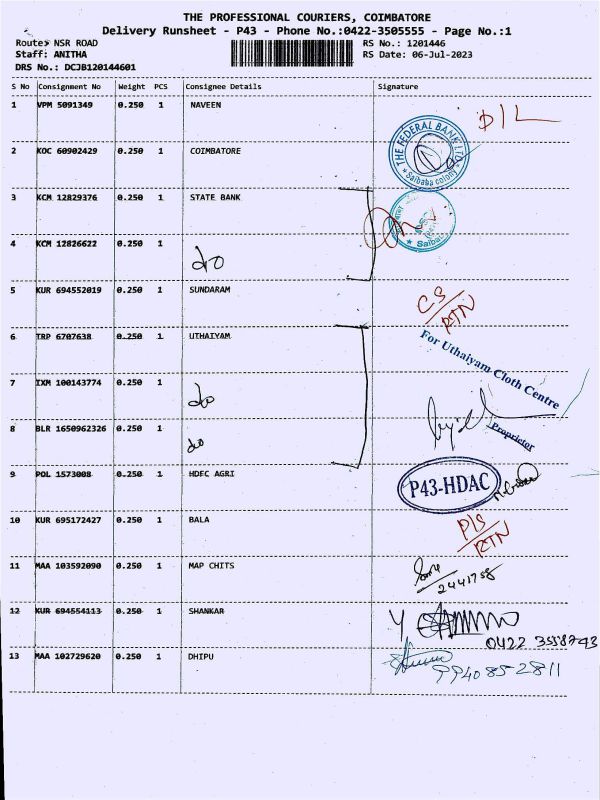 THE PROFESSIONAL COURIERS, COIMBATORE
Delivery Runsheet - P43 - Phone No.:0422-3505555 - Page No.:1
Route: NSR ROAD
RS No.: 1201446
Staff: ANITHA
RS Date: 06-Jul-2023
DRS No.: DCJB120144601
S No Consignment No Weight PCS Consignee Details Signature
1 VPM 5091349 0.250 1 NAVEEN D/L
2 KOC 60902429 0.250 1 COIMBATORE
THE FEDERAL BANK LTD.
Saibaba colony
3 KCM 12829376 0.250 1 STATE BANK
4 KCM 12826622 0.250 1 do
5 KUR 694552019 0.250 1 SUNDARAM CS/RTN
6 TRP 6707638 0.250 1 UTHAIYAM
For Uthaiyam Cloth Centre
7 IXM 100143774 0.250 1 do
8 BLR 1650962326 0.250 1 do
Proprietor
9 POL 1573008 0.250 1 HDFC AGRI P43-HDAC
10 KUR 695172427 0.250 1 BALA P/S RTN
11 MAA 103592090 0.250 1 MAP CHITS
2441758
12 KUR 694554113 0.250 1 SHANKAR
0422 3558743
13 MAA 102729620 0.250 1 DHIPU
9940852811